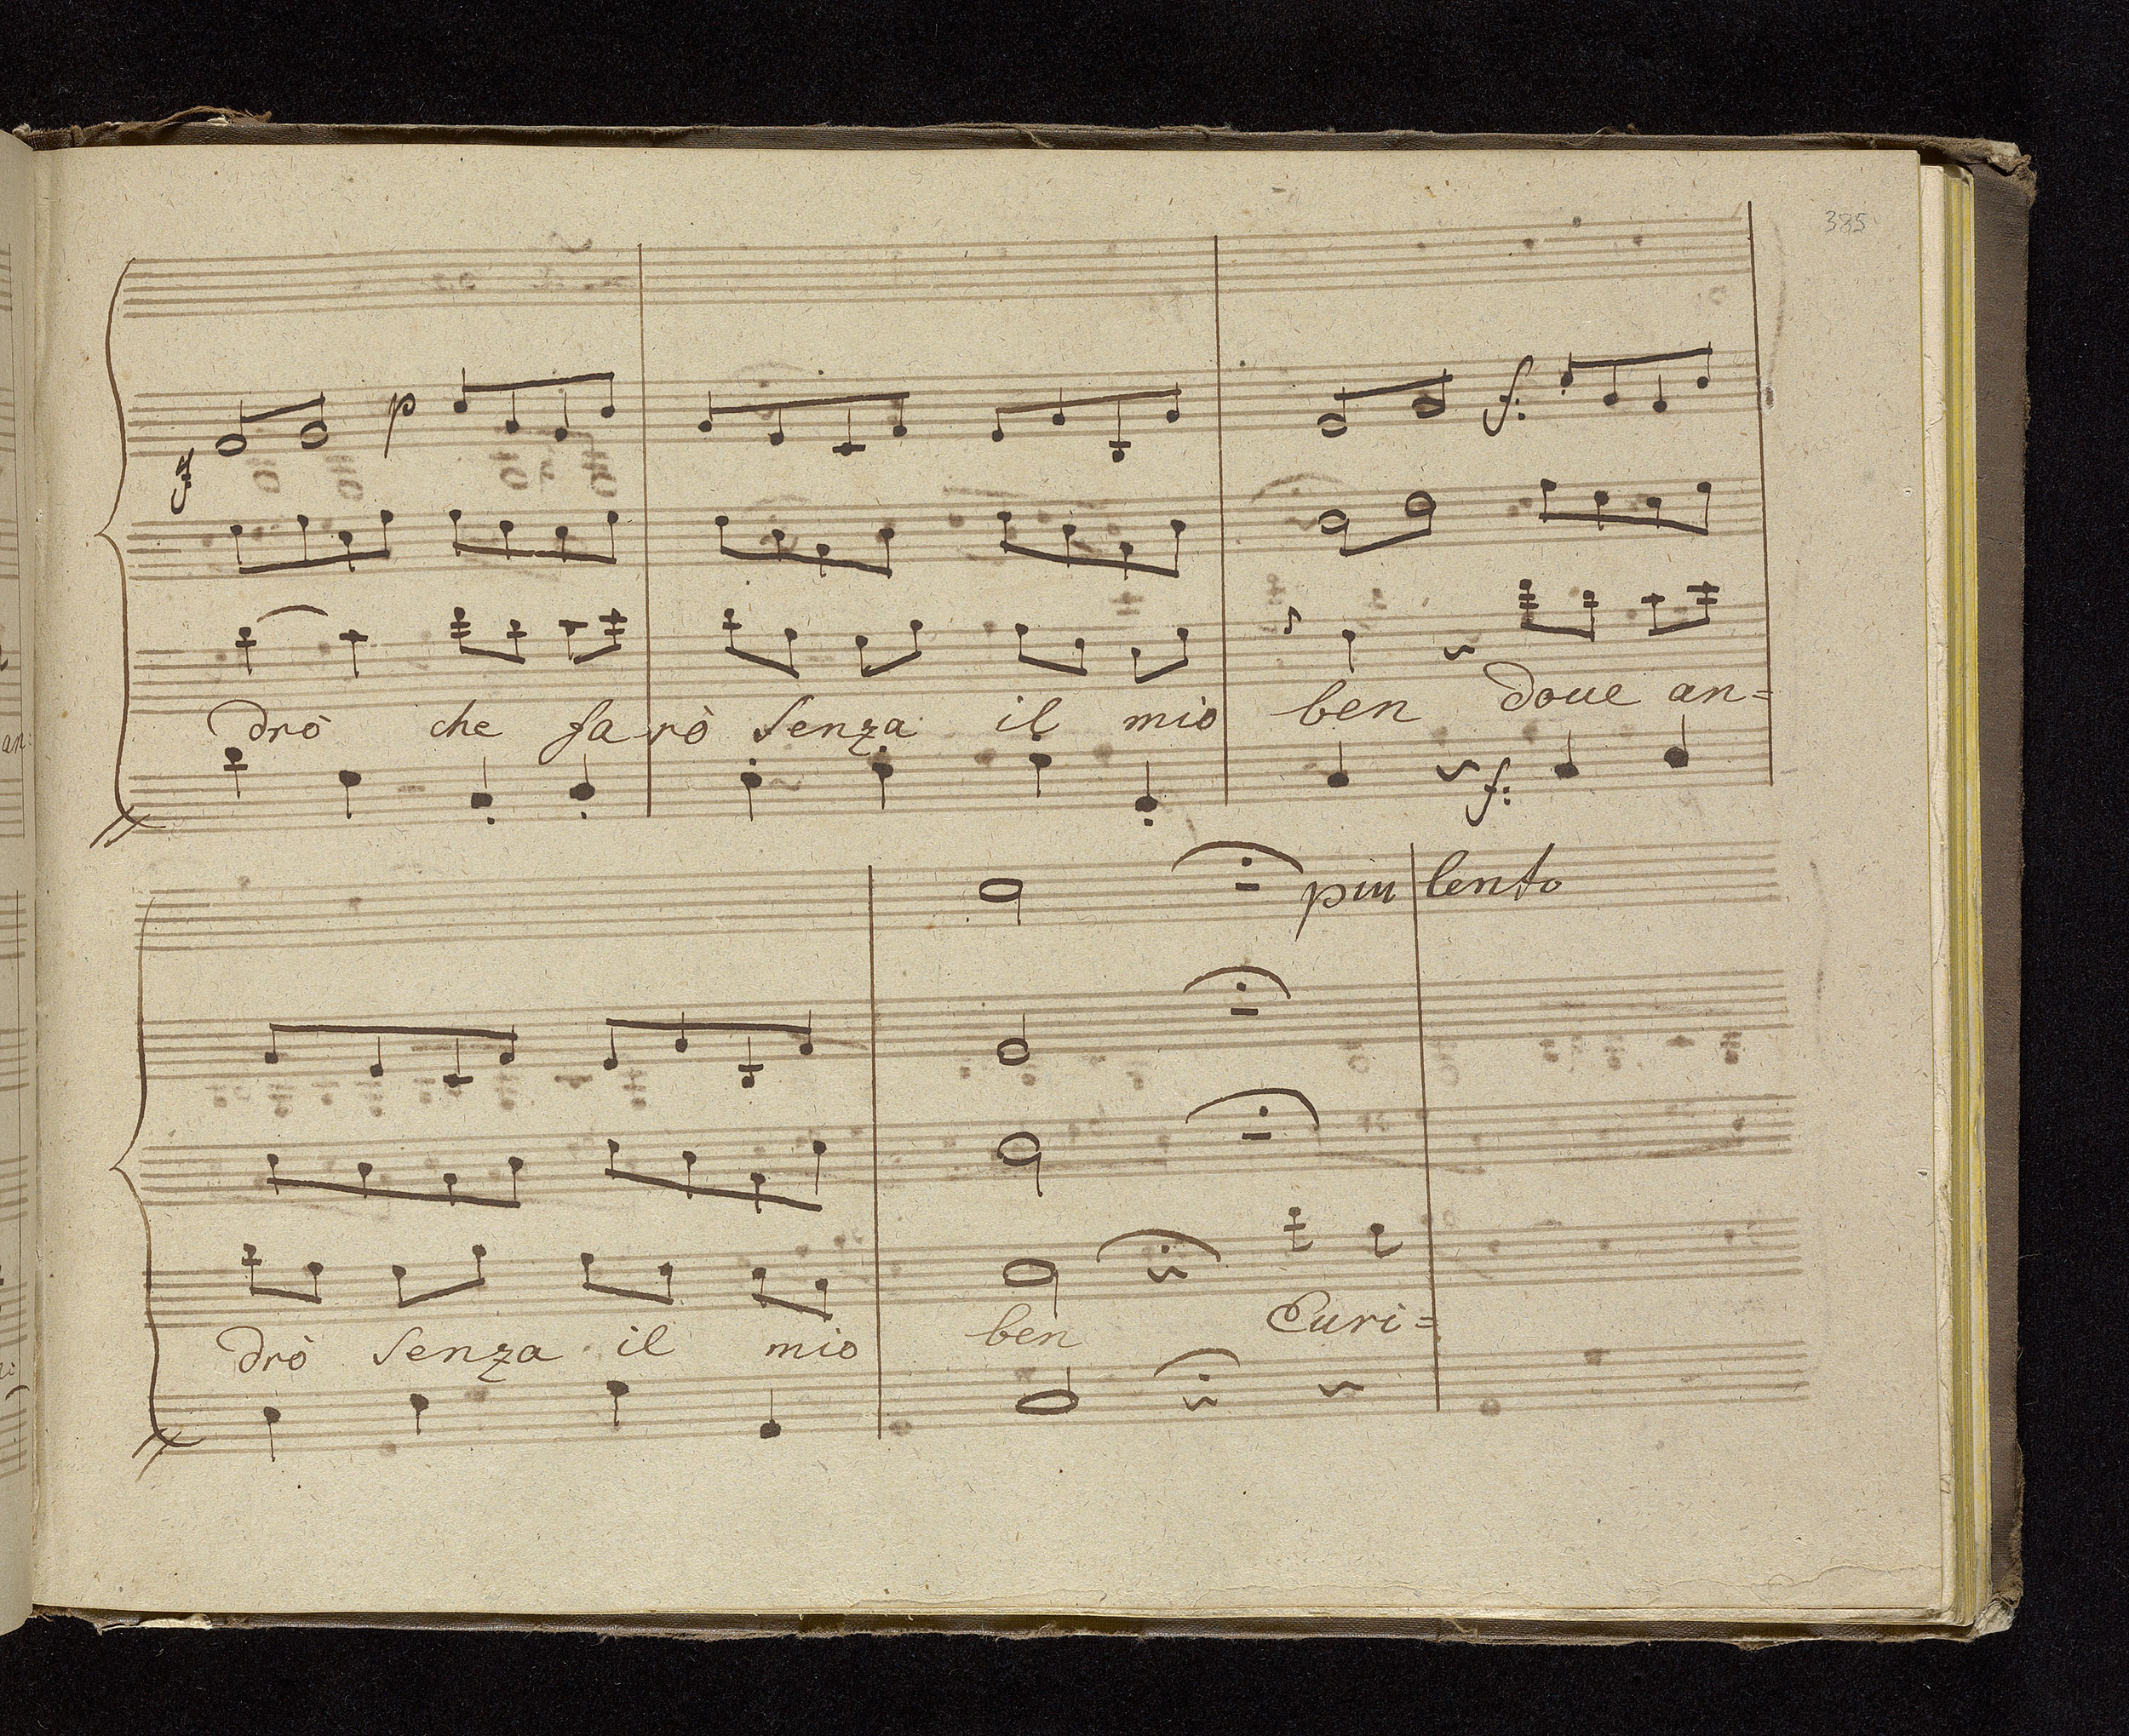 385
p
f:
f:
drò che farò senza il mio ben doue an=
f:
piu lento
drò senza il mio ben Euri=